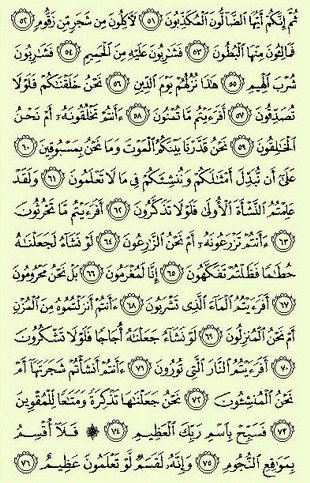 ثُمَّ إِنَّكُمْ أَيُّهَا ٱلضَّآلُّونَ ٱلْمُكَذِّبُونَ ٥١ لَأَكِلُونَ مِن شَجَرٍ مِّن زَقُّومٍ ٥٢
فَمَالِـُٔونَ مِنْهَا ٱلْبُطُونَ ٥٣ فَشَٰرِبُونَ عَلَيْهِ مِنَ ٱلْحَمِيمِ ٥٤ فَشَٰرِبُونَ
شُرْبَ ٱلْهِيمِ ٥٥ هَٰذَا نُزُلُهُمْ يَوْمَ ٱلدِّينِ ٥٦ نَحْنُ خَلَقْنَٰكُمْ فَلَوْلَا
تُصَدِّقُونَ ٥٧ أَفَرَءَيْتُم مَّا تُمْنُونَ ٥٨ ءَأَنتُمْ تَخْلُقُونَهُۥٓ أَمْ نَحْنُ
ٱلْخَٰلِقُونَ ٥٩ نَحْنُ قَدَّرْنَا بَيْنَكُمُ ٱلْمَوْتَ وَمَا نَحْنُ بِمَسْبُوقِينَ ٦٠
عَلَىٰٓ أَن نُّبَدِّلَ أَمْثَٰلَكُمْ وَنُنشِئَكُمْ فِى مَا لَا تَعْلَمُونَ ٦١ وَلَقَدْ
عَلِمْتُمُ ٱلنَّشْأَةَ ٱلْأُولَىٰ فَلَوْلَا تَذَكَّرُونَ ٦٢ أَفَرَءَيْتُم مَّا تَحْرُثُونَ
٦٣ ءَأَنتُمْ تَزْرَعُونَهُۥٓ أَمْ نَحْنُ ٱلزَّٰرِعُونَ ٦٤ لَوْ نَشَآءُ لَجَعَلْنَٰهُ
حُطَٰمًا فَظَلْتُمْ تَفَكَّهُونَ ٦٥ إِنَّا لَمُغْرَمُونَ ٦٦ بَلْ نَحْنُ مَحْرُومُونَ
٦٧ أَفَرَءَيْتُمُ ٱلْمَآءَ ٱلَّذِى تَشْرَبُونَ ٦٨ ءَأَنتُمْ أَنزَلْتُمُوهُ مِنَ ٱلْمُزْنِ
أَمْ نَحْنُ ٱلْمُنزِلُونَ ٦٩ لَوْ نَشَآءُ جَعَلْنَٰهُ أُجَاجًا فَلَوْلَا تَشْكُرُونَ
٧٠ أَفَرَءَيْتُمُ ٱلنَّارَ ٱلَّتِى تُورُونَ ٧١ ءَأَنتُمْ أَنشَأْتُمْ شَجَرَتَهَآ أَمْ
نَحْنُ ٱلْمُنشِـُٔونَ ٧٢ نَحْنُ جَعَلْنَٰهَا تَذْكِرَةً وَمَتَٰعًا لِّلْمُقْوِينَ
٧٣ فَسَبِّحْ بِٱسْمِ رَبِّكَ ٱلْعَظِيمِ ٧٤ ۞ فَلَآ أُقْسِمُ
بِمَوَٰقِعِ ٱلنُّجُومِ ٧٥ وَإِنَّهُۥ لَقَسَمٌ لَّوْ تَعْلَمُونَ عَظِيمٌ ٧٦